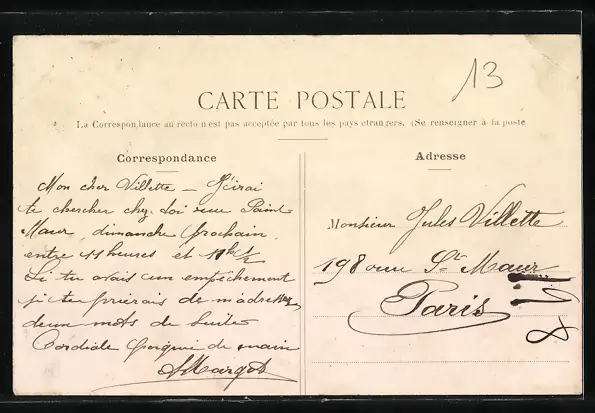 13
CARTE POSTALE
La Correspondance au recto n'est pas acceptée par tous les pays étrangers. (Se renseigner à la poste
Correspondance
Mon cher Villette – J'irai
te chercher chez toi rue Saint
Maur dimanche prochain
entre 11 heures et 11h 1/2
Si tu avais un empêchement
je te prierais de m'adresser
deux mots de suite
Cordiale poignée de main
AMargot
Adresse
Monsieur Jules Villette
198 rue St Maur
Paris